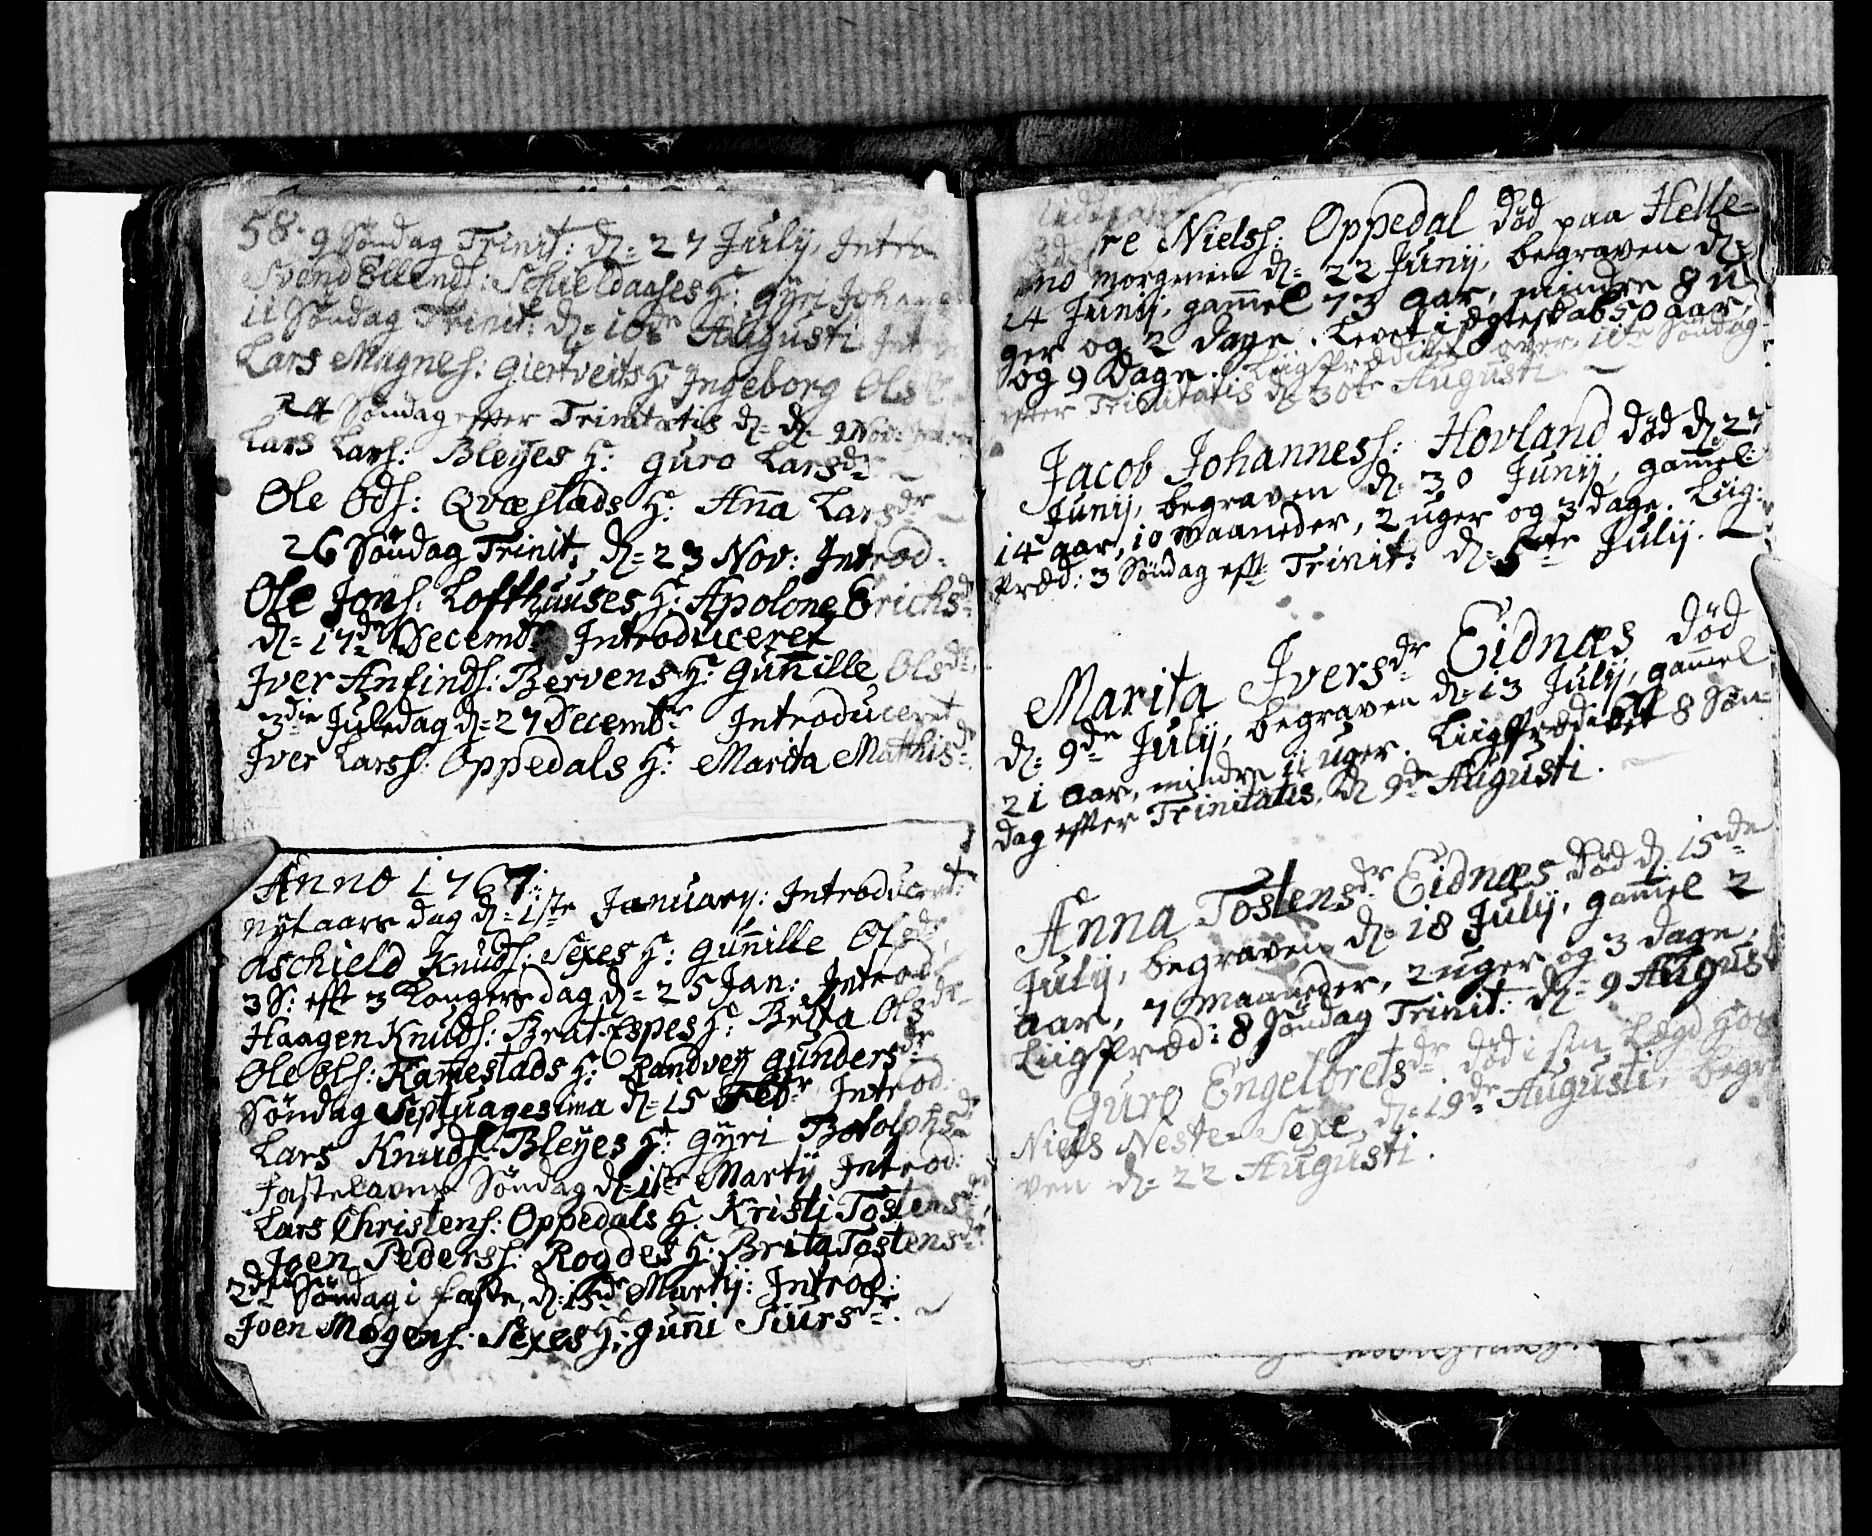 58. 9 Søndag Trinit: d= 27 July, Intro
Svend Ellends: Schieldaases H: Gyri Johan
11 Søndag Trinit: d= 10de Augusti Intr
Lars Magnes: Giertveits H: Ingeborg Ols
24 Søndag efter Trinitatis d= d= 9 Nov:
Lars Lars: Bleyes H: Guro Larsdr ~
Ole Ods: Qvæstads H: Anna Larsdr ~
26 Søndag Trinit: d= 23 Nov: Introd=
Ole Jons: Lofthuuses H: Apolone Erichsdr
d= 17de Decembr Introduceret
Iver Anfinds: Bervens H: Gunnille Olsdr
3die Juledag d= 27 Decembr Introduceret
Iver Larss: Oppedals H: Marita Mathisdr
Anno 1767:
Nytaars dag d= 1ste January: Introduceret:
Aschield Knuds: Sexes H: Gunnille Olsdr,
3 S: eft 3 Kongers dag d= 25 Jan: Introd:
Haagen Knuds: Brat-Espes H: Brita Olsdr
Ole Ols: Hamestads H: Randvey Gundersdr
Søndag Septuagesima d= 15 Febr Introd:
Lars Knuds: Bleyes H: Gyri Botolphsdr
Fastelavns Søndag d= 1ste Martij Introd:
Lars Christens: Oppedals H: Kristi Tostensdr,
Joen Peders: Rogdes H: Brita Tostensdr
2den Søndag i faste, d: 15de Martij: Introd:
Joen Mogens: Sexes H: Gunni Siursdr. ~
re Niels: Oppedal død paa Helle=
morgenen d= 22 Junij, begraven d=
24 Junij, gammel 73 Aar, mindre 8 u
ger og 2 dage. Levet i Ægteskab 50 aar,
og 9 Dage. Liigprædiket over, 11te Søndag
efter Trinitatis d= 30te Augusti ~
Jacob Johanness: Hovland død d= 27
Junij, begraven d= 30 Junij, gammel
14 aar, 10 Maaneder, 2 uger og 3 dage. Liig:
Præd: 3 Søndag eft= Trinit: d= 5te July. ~
Marita Iversdr Eidnæs død
d= 9de July, begraven d= 13 July, gammel
21 Aar, mindre 11 uger. Liigprædiket 8 Søn=
dag efter Trinitatis, d= 9de Augusti. ~
Anna Tostensdr Eidnæs død d= 15de
July, begraven d= 18 July, gammel 2
aar, 7 Maaneder, 2 uger og 3 dage,
Liigpræd: 8 Søndag Trinit: d= 9 August
Guro Engelbretsdr død i sin Lægd hos
Niels Neste-Sexe, d= 19de Augusti, begra
ven d= 22 Augusti.